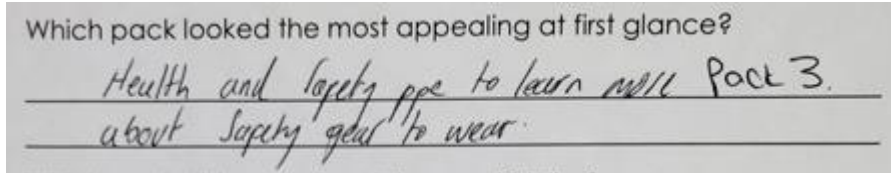 Which pack looked the most appealing at first glance?
Health and Safety ppe to learn more Pack 3.
about Safety gear to wear.